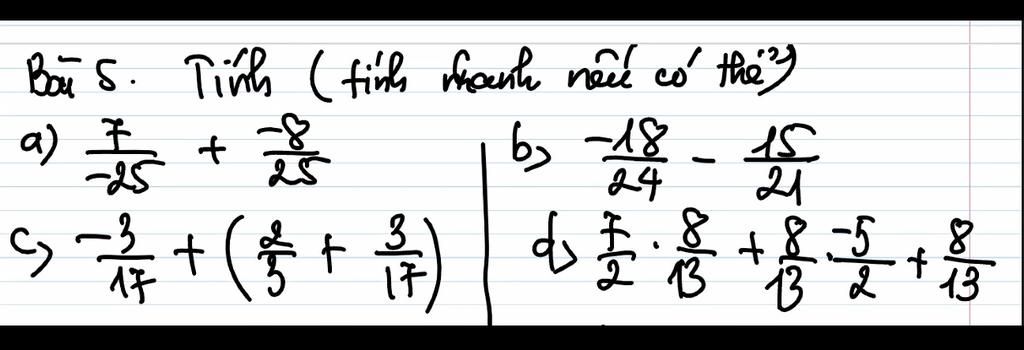 Bài 5. Tính (tính nhanh nếu có thể)
a) 7/-25 + -8/25
b) -18/24 - 15/21
c) -3/17 + (2/3 + 3/17)
d) 7/2 . 8/13 + 8/13 . -5/2 + 8/13